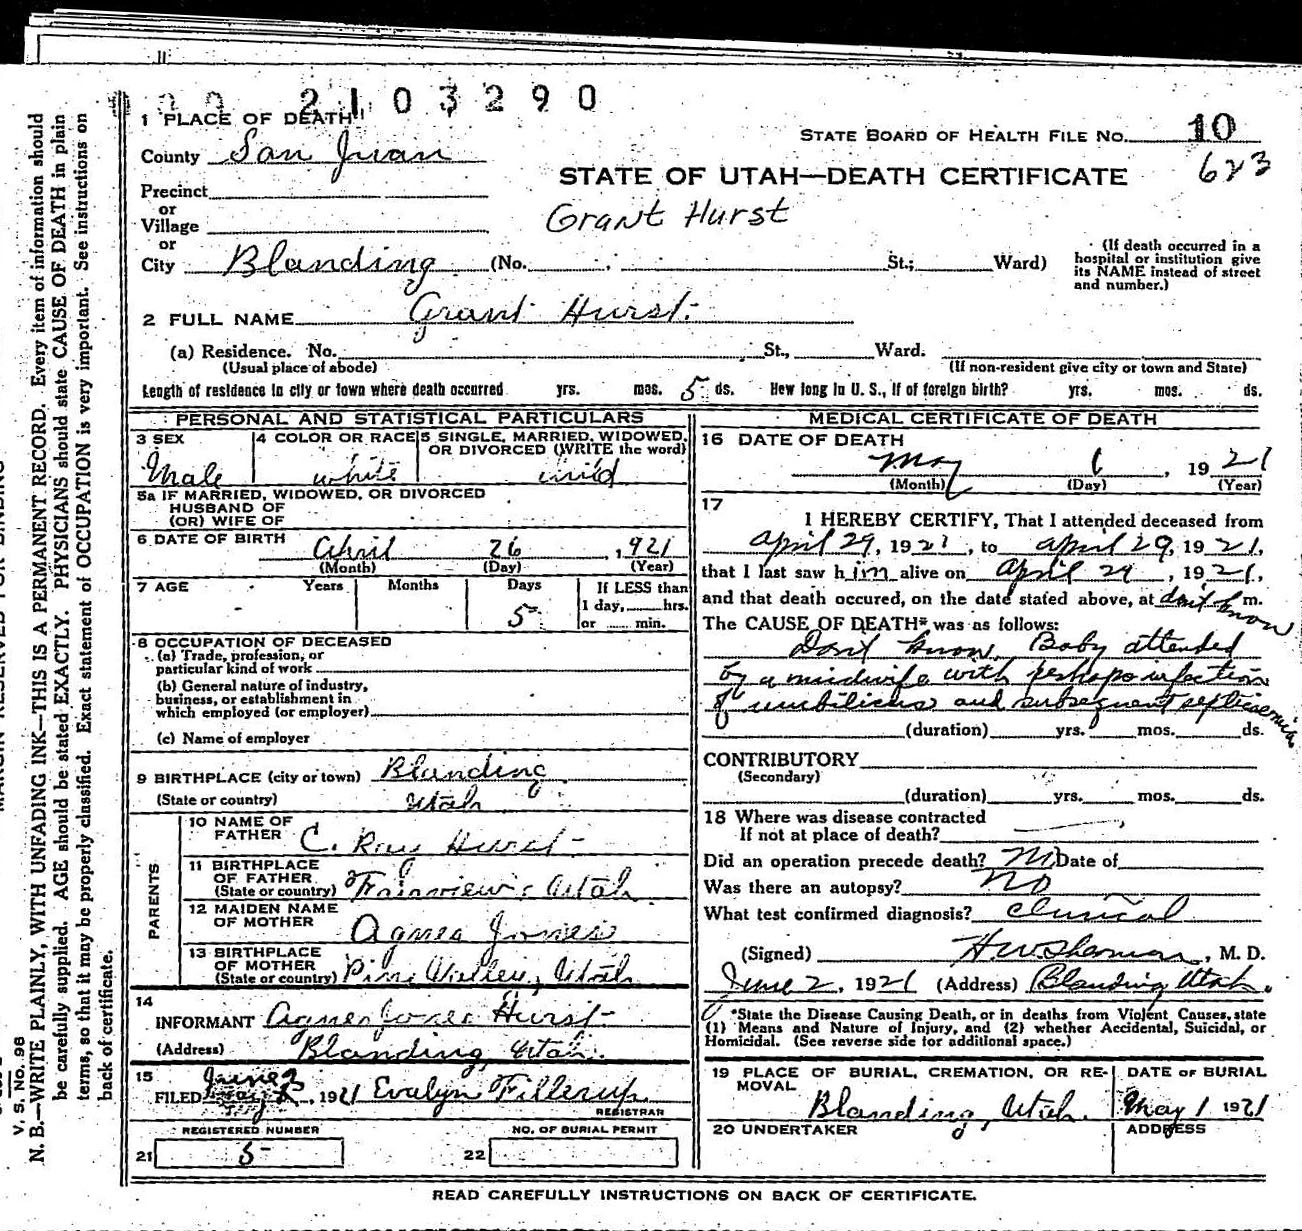 2103290
1 PLACE OF DEATH
STATE BOARD OF HEALTH FILE No. 10
County San Juan
623
STATE OF UTAH—DEATH CERTIFICATE
Precinct
or
Village
Grant Hurst
or
City Blanding (No. St.; Ward)
(If death occurred in a
hospital or institution give
its NAME instead of street
and number.)
2 FULL NAME Grant Hurst
(a) Residence. No. St., Ward.
(Usual place of abode) (If non-resident give city or town and State)
Length of residence in city or town where death occurred yrs. mos. 5 ds. How long in U. S., if of foreign birth? yrs. mos. ds.
PERSONAL AND STATISTICAL PARTICULARS
3 SEX
Male
4 COLOR OR RACE
white
5 SINGLE, MARRIED, WIDOWED,
OR DIVORCED (WRITE the word)
child
5a IF MARRIED, WIDOWED, OR DIVORCED
HUSBAND OF
(OR) WIFE OF
6 DATE OF BIRTH April 26, 1921
(Month) (Day) (Year)
7 AGE Years Months Days If LESS than
5 1 day, hrs.
or min.
8 OCCUPATION OF DECEASED
(a) Trade, profession, or
particular kind of work
(b) General nature of industry,
business, or establishment in
which employed (or employer)
(c) Name of employer
9 BIRTHPLACE (city or town) Blanding
(State or country) Utah
PARENTS
10 NAME OF
FATHER C. Ray Hurst
11 BIRTHPLACE
OF FATHER
(State or country) Fairview, Utah
12 MAIDEN NAME
OF MOTHER Agnes Jones
13 BIRTHPLACE
OF MOTHER
(State or country) Pine Valley, Utah
14
INFORMANT Agnes Jones Hurst
(Address) Blanding, Utah.
15
FILED June 3, 1921 Evalyn Fillerup
REGISTRAR
REGISTERED NUMBER NO. OF BURIAL PERMIT
21 5 22
MEDICAL CERTIFICATE OF DEATH
16 DATE OF DEATH
May 1, 1921
(Month) (Day) (Year)
17
I HEREBY CERTIFY, That I attended deceased from
April 29, 1921, to April 29, 1921,
that I last saw him alive on April 29, 1921,
and that death occured, on the date stated above, at don't know m.
The CAUSE OF DEATH* was as follows:
Don't know. Baby attended
by a midwife with perhaps infection
of umbilicus and subsequent septicemia
(duration) yrs. mos. ds.
CONTRIBUTORY
(Secondary)
(duration) yrs. mos. ds.
18 Where was disease contracted
If not at place of death?
Did an operation precede death? No Date of
Was there an autopsy? No
What test confirmed diagnosis? Clinical
(Signed) H W Sherman, M. D.
June 2, 1921 (Address) Blanding Utah.
*State the Disease Causing Death, or in deaths from Violent Causes, state
(1) Means and Nature of Injury, and (2) whether Accidental, Suicidal, or
Homicidal. (See reverse side for additional space.)
19 PLACE OF BURIAL, CREMATION, OR RE-
MOVAL
Blanding, Utah.
DATE OF BURIAL
May 1 1921
20 UNDERTAKER ADDRESS
READ CAREFULLY INSTRUCTIONS ON BACK OF CERTIFICATE.
V. S. No. 98
N. B.—WRITE PLAINLY, WITH UNFADING INK—THIS IS A PERMANENT RECORD. Every item of information should
be carefully supplied. AGE should be stated EXACTLY. PHYSICIANS should state CAUSE OF DEATH in plain
terms, so that it may be properly classified. Exact statement of OCCUPATION is very important. See instructions on
back of certificate.